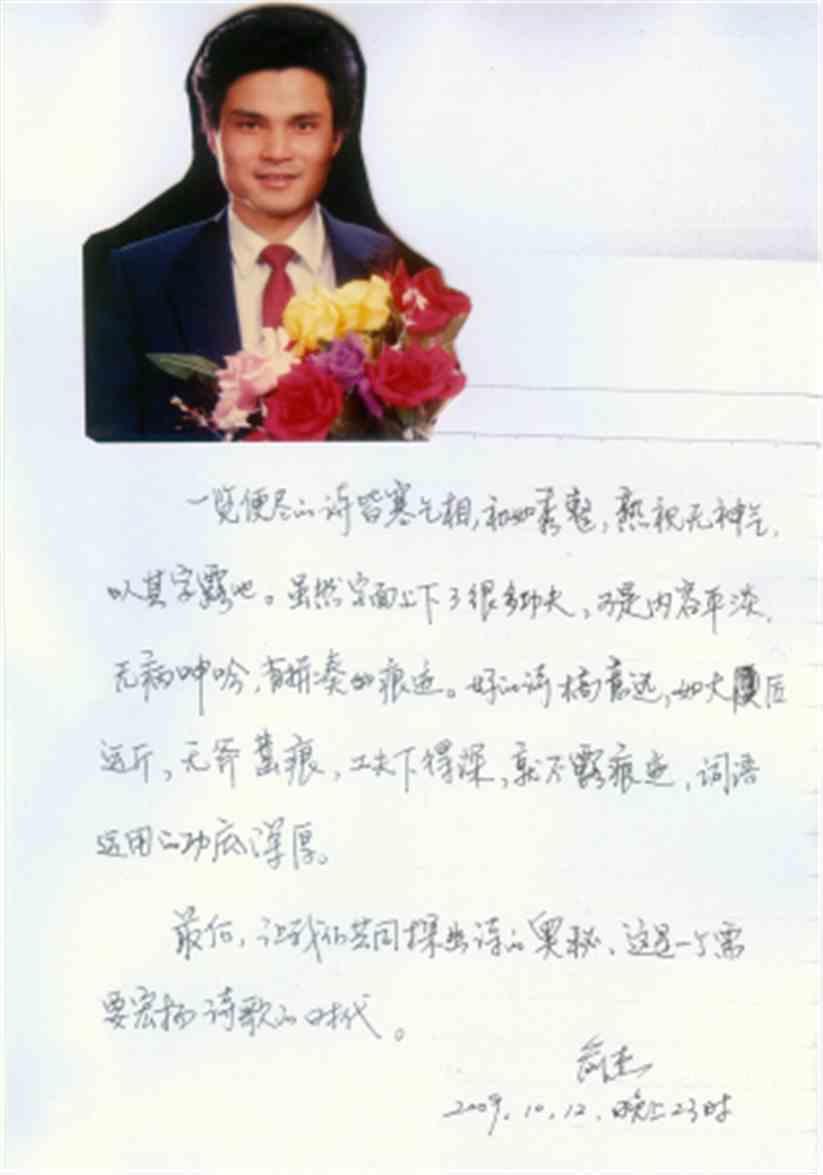 一览便尽的诗皆寒乞相,初如秀整,熟视无神气,
以其字露也。虽然字面上下了很多功夫,可是内容平淡,
无病呻吟,有拼凑的痕迹。好的诗格高意远,如大匠
运斤,无斧凿痕,工夫下得深,就不露痕迹,词语
运用的功底浑厚。
最后,让我们共同探出诗的奥秘、这是一个需
要宏扬诗歌的时代。
2009.10.12.晚上23时